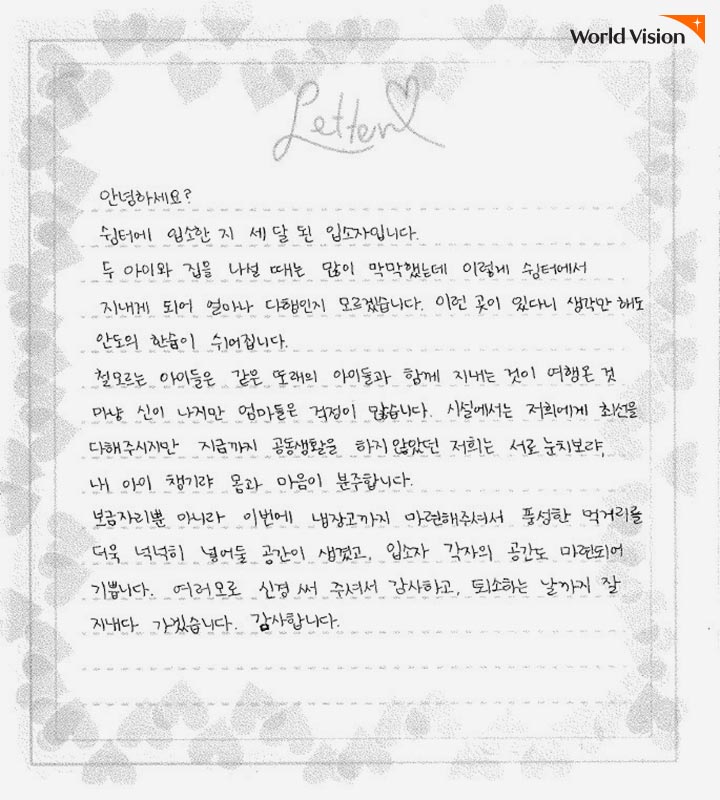 World Vision
Letter
안녕하세요?
쉼터에 입소한 지 세 달 된 입소자입니다.
두 아이와 집을 나설 때는 많이 막막했는데 이렇게 쉼터에서
지내게 되어 얼마나 다행인지 모르겠습니다. 이런 곳이 있다니 생각만 해도
안도의 한숨이 쉬어집니다.
철모르는 아이들은 같은 또래의 아이들과 함께 지내는 것이 여행온 것
마냥 신이 나지만 엄마들은 걱정이 많습니다. 시설에서는 저희에게 최선을
다해주시지만 지금까지 공동생활을 하지 않았던 저희는 서로 눈치보랴,
내 아이 챙기랴 몸과 마음이 분주합니다.
보금자리뿐 아니라 이번에 냉장고까지 마련해주셔서 풍성한 먹거리를
더욱 넉넉히 넣어둘 공간이 생겼고, 입소자 각자의 공간도 마련되어
기쁩니다. 여러모로 신경 써 주셔서 감사하고, 퇴소하는 날까지 잘
지내다 가겠습니다. 감사합니다.